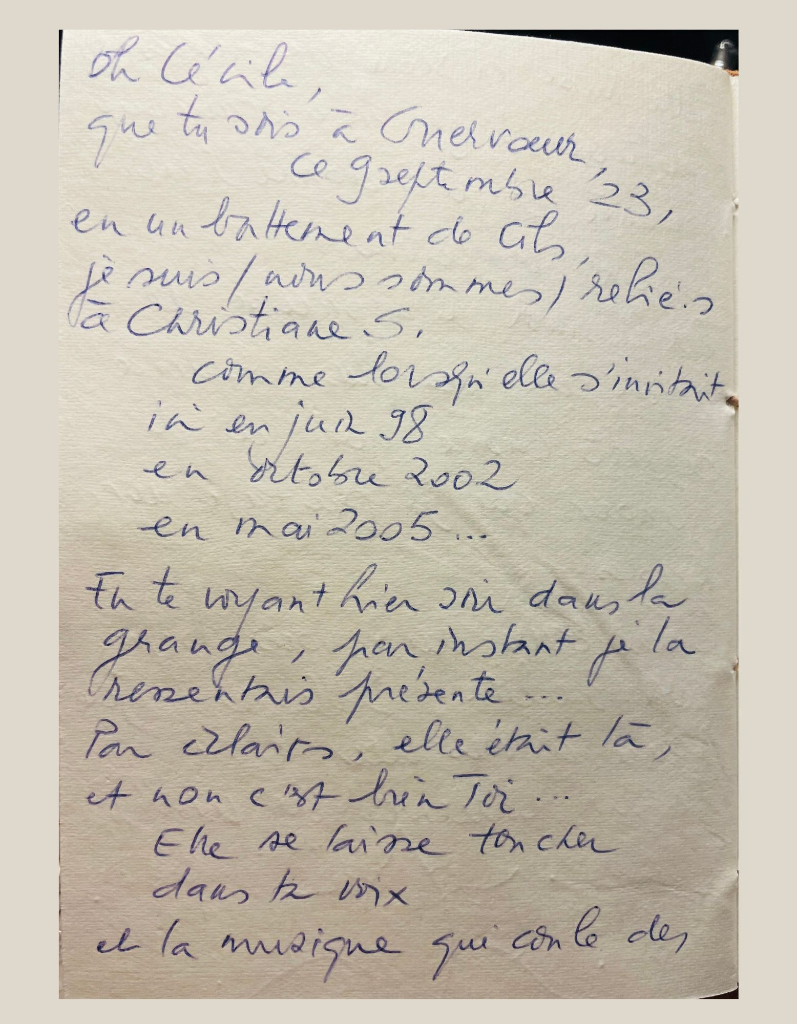 Oh Cécile,
que tu sois à Guervœur,
ce 9 septembre '23,
en un battement de cils,
je suis / nous sommes / reliés
à Christiane S.
comme lorsqu'elle s'invitait
ici en juin 98
en octobre 2002
en mai 2005...
En te voyant hier soir dans la
grange, par instant je la
ressentais présente...
Par éclairs, elle était là,
et non c'est bien Toi...
Elle se laisse toucher
dans ta voix
et la musique qui coule des